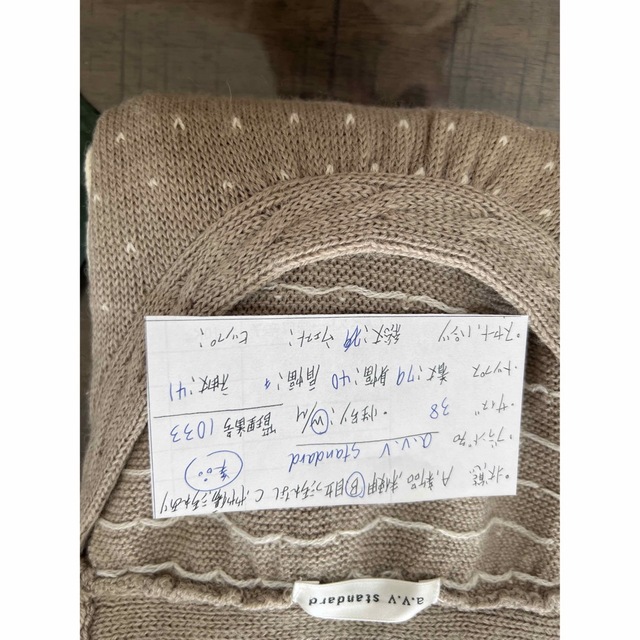 ・状態
A.新品,未使用 B 目立つ汚れなし C.やや傷、汚れあり
・ブランド名 a.v.v standard
・サイズ 38 ・性別: W/M 管理番号 1033
・トップス 着丈:79 身幅:40 肩幅: 袖丈:41
・スカート,パンツ 総丈: ウエスト: ヒップ:
a.v.v standard